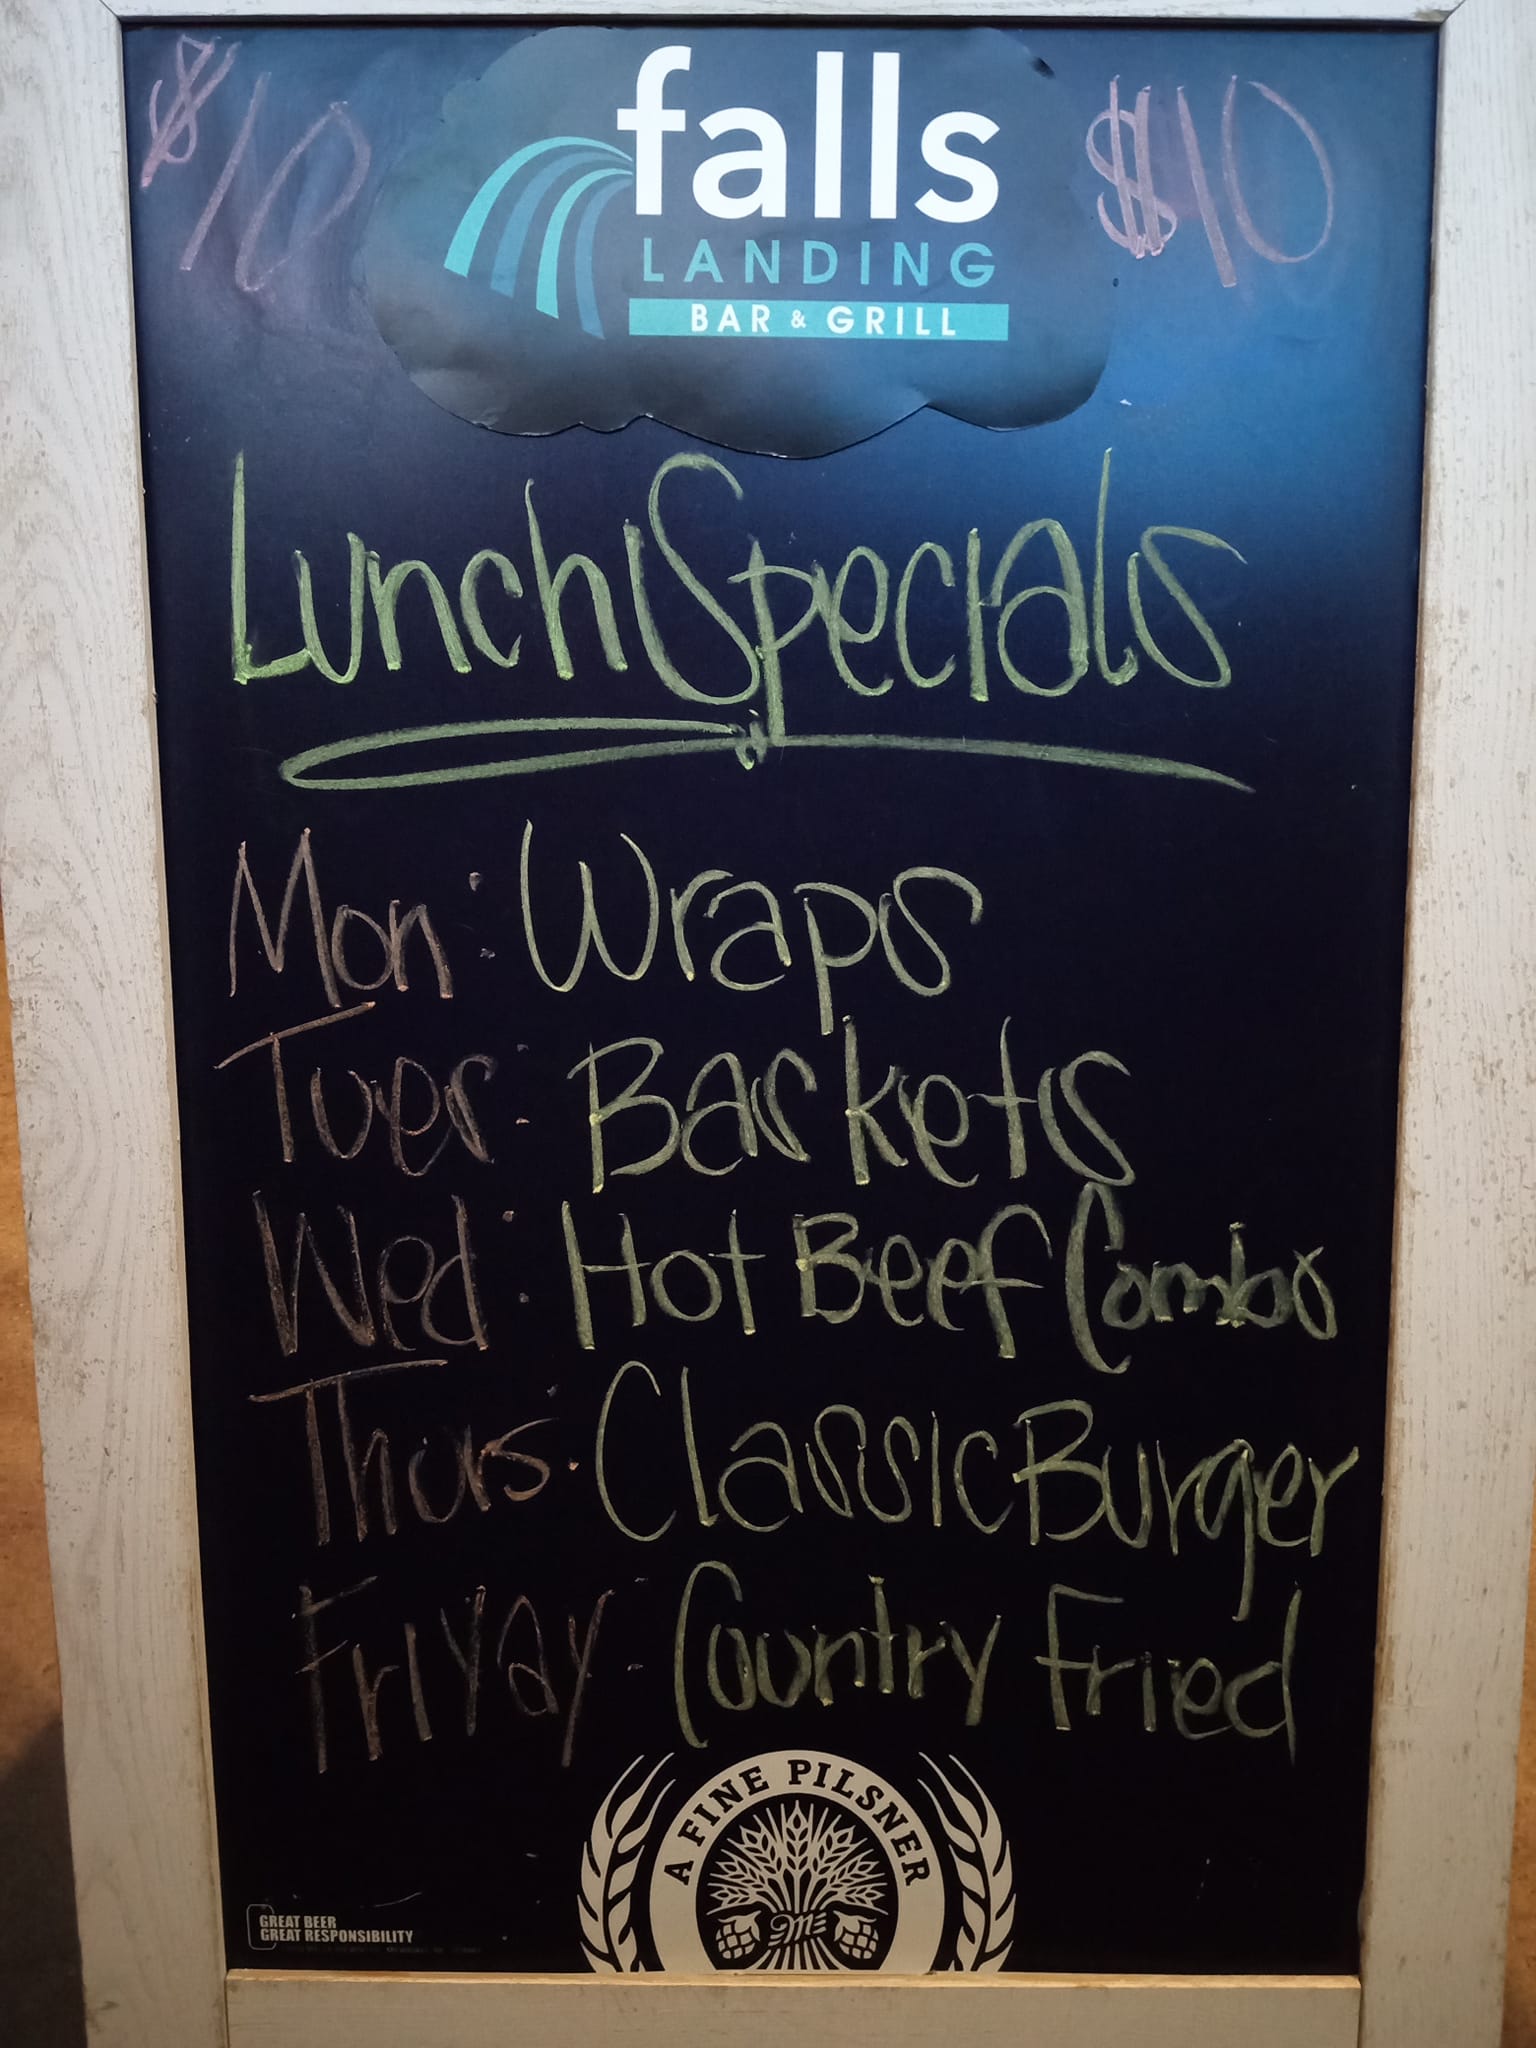 $10
falls
$10
LANDING
BAR & GRILL
Lunch Specials
Mon: Wraps
Tues: Baskets
Wed: Hot Beef Combo
Thurs: Classic Burger
Friyay: Country Fried
A FINE PILSNER
M
GREAT BEER
GREAT RESPONSIBILITY